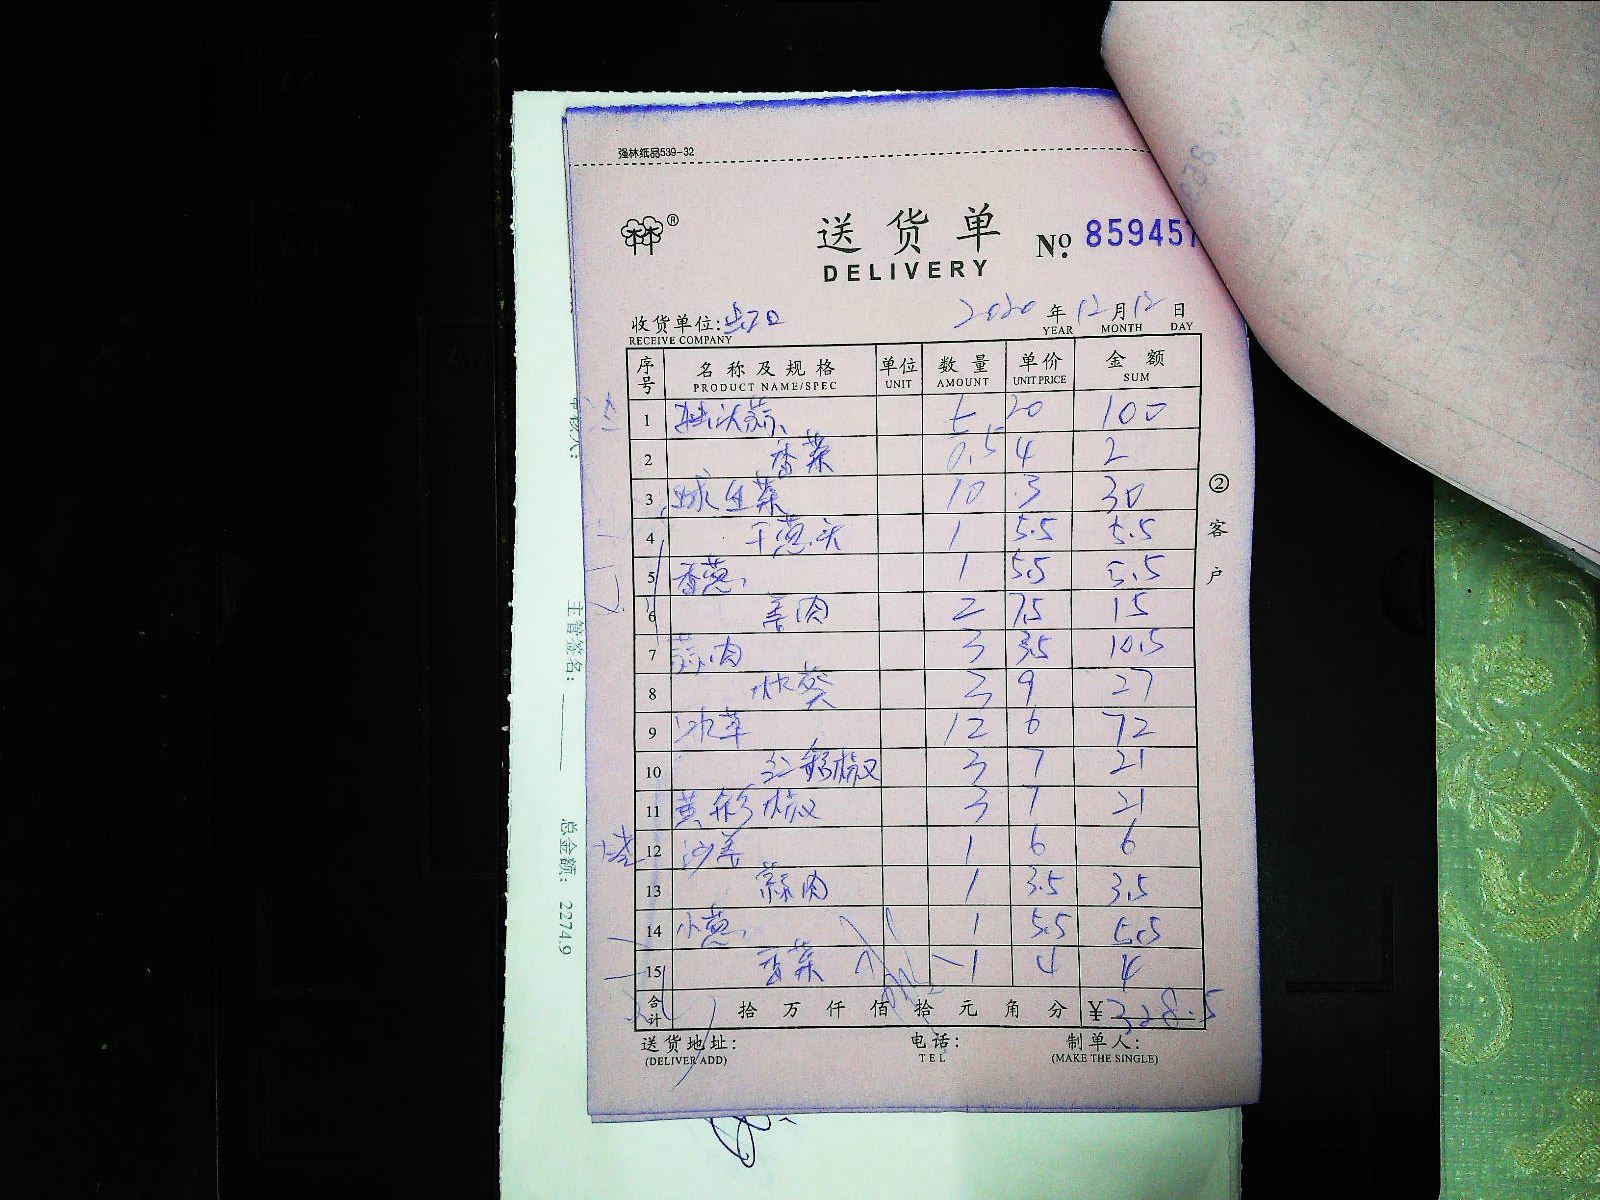 强林纸品539-32
林林®
送货单
DELIVERY
No. 859457
收货单位: 2020年12月12日
RECEIVE COMPANY YEAR MONTH DAY
序号 名称及规格 单位 数量 单价 金额
PRODUCT NAME/SPEC UNIT AMOUNT UNIT PRICE SUM
1 独头蒜 5 20 100
2 香菜 0.5 4 2
3 球生菜 10 3 30
4 干葱头 1 5.5 5.5
5 香葱 1 5.5 5.5
6 姜肉 2 7.5 15
7 蒜肉 3 3.5 10.5
8 秋葵 3 9 27
9 冰草 12 6 72
10 红彩椒 3 7 21
11 黄彩椒 3 7 21
12 沙姜 1 6 6
13 蒜肉 1 3.5 3.5
14 小葱 1 5.5 5.5
15 香菜 1 4 4
合计 拾万仟佰拾元角分 ¥328.5
送货地址: 电话: 制单人:
(DELIVER ADD) TEL (MAKE THE SINGLE)
②客户
主管签名:
总金额: 2274.9